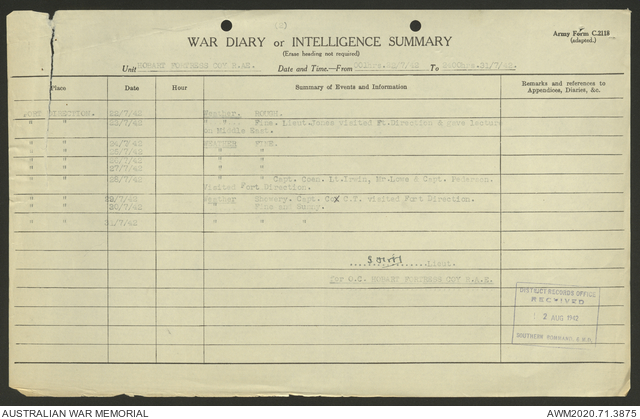 (2)
Army Form C.2118
(adapted.)
WAR DIARY or INTELLIGENCE SUMMARY
(Erase heading not required)
Unit HOBART FORTRESS COY R.AE. Date and Time.—From 0001hrs. 22/7/42 To 2400hrs.31/7/42.
Place Date Hour Summary of Events and Information Remarks and references to
Appendices, Diaries, &c.
FORT DIRECTION. 22/7/42 Weather. ROUGH.
" " 23/7/42 " " Fine. Lieut. visited Ft.Direction & gave lecture
on Middle East.
" " 24/7/42 WEATHER FINE.
" " 25/7/42 " "
" " 26/7/42 " "
" " 27/7/42 " "
" " 28/7/42 " " Capt. Coen. Lt.Irwin, Mr.Lowe & Capt. Pederson.
Visited Fort Direction.
" " 29/7/42 Weather Showery. Capt. Cox C.T. visited Fort Direction.
" " 30/7/42 Fine and Sunny.
" " 31/7/42 " " "
Lieut.
for O.C. HOBART FORTRESS COY R.A.E.
DISTRICT RECORDS OFFICE
RECEIVED
2 AUG 1942
SOUTHERN COMMAND, A.M.F.
AUSTRALIAN WAR MEMORIAL
AWM2020.71.3875